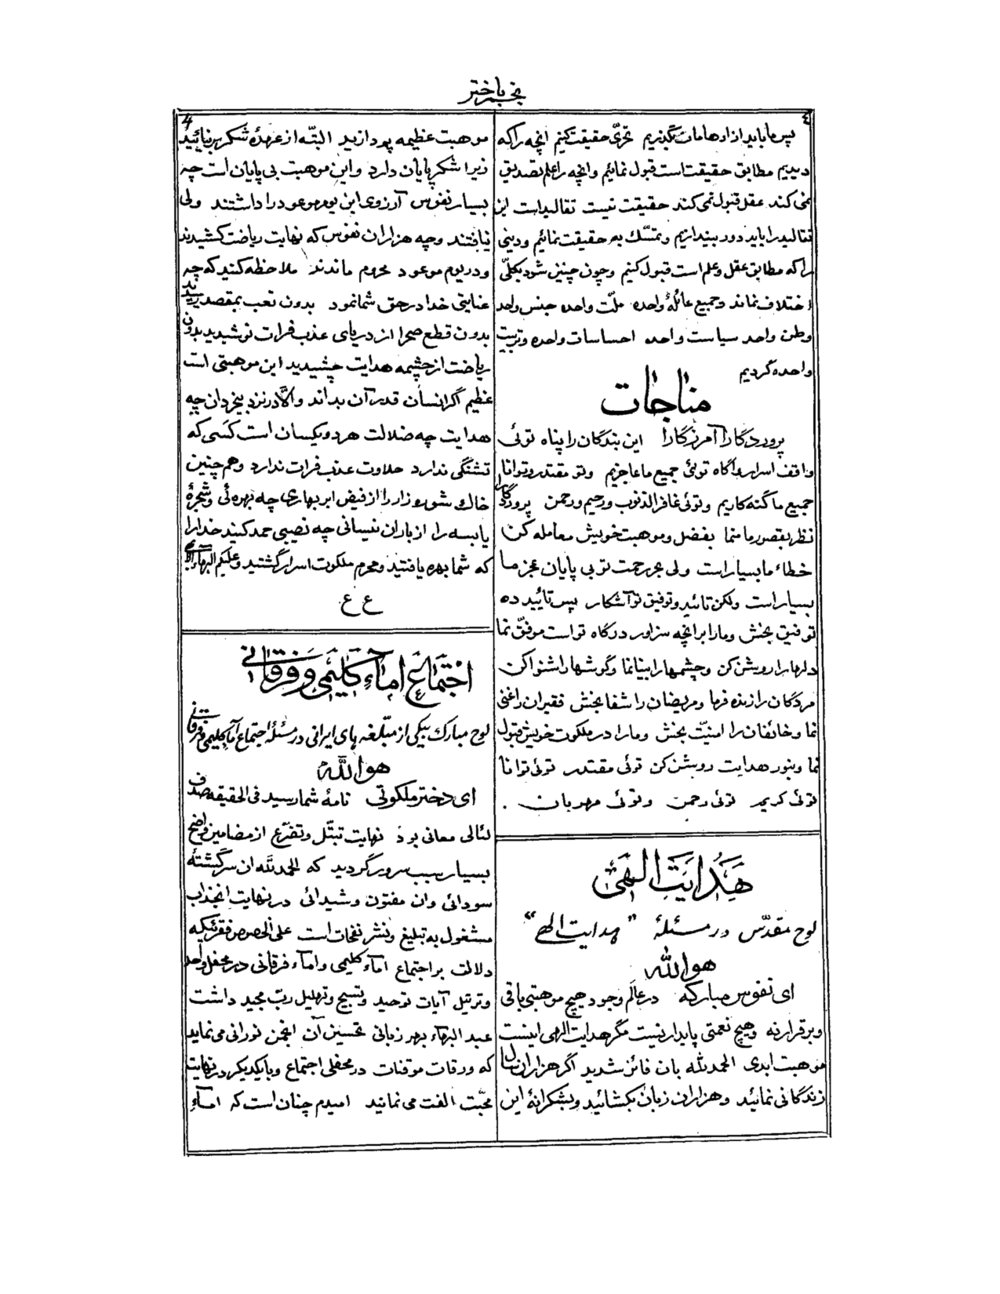 نجم باختر
٤
4
پس ما باید از اوهامات بگذریم تحرّی حقیقت کنیم آنچه را که
دیدیم مطابق حقیقت است قبول نمائیم و آنچه را علم تصدیق
نمی کند عقل قبول نمی کند حقیقت نیست تقالید است این
تقالید را باید دور بیندازیم و تمسّک به حقیقت نمائیم و دینی
را که مطابق عقل و علم است قبول کنیم و چون چنین شود بکلّی
اختلاف نماند و جمیع عائلهٔ واحده ملّت واحده جنس واحد
وطن واحد سیاست واحده احساسات واحده و تربیت
واحده گردیم
مناجات
پروردگارا آمرزگارا این بندگان را پناه توئی
واقف اسرار و آگاه توئی جمیع ما عاجزیم و تو مقتدر و توانا
جمیع ما گنه کاریم و توئی غافر الذنوب و رحیم و رحمن پروردگارا
نظر بقصور ما منما بفضل و موهبت خویش معامله کن
خطاء ما بسیار است ولی بحر رحمت تو بی پایان عجز ما
بسیار است ولکن تائید و توفیق تو آشکار پس تأیید ده
توفیق بخش و ما را بر آنچه سزاور درگاه تو است موفّق نما
دلها را روشن کن و چشمها را بینا نما و گوشها را شنوا کن
مردگان را زنده فرما و مریضان را شفا بخش فقیران را غنی
نما و خائفان را امنیّت بخش و ما را در ملکوت خویش قبول
نما و بنور هدایت روشن کن توئی مقتدر توئی توانا
توئی کریم توئی رحمن و توئی مهربان .
هدایت الهی
لوح مقدّس در مسئلهٔ "هدایت الهی"
هوالله
ای نفوس مبارکه در عالم وجود هیچ موهبتی باقی
و برقرار نه و هیچ نعمتی پایدار نیست مگر هدایت الهی اینست
موهبت ابدی الحمدلله بآن فائز شدید اگر هزاران سال
زندگانی نمائید و هزاران زبان بگشائید و بشکرانهٔ این
موهبت عظیمه پردازید البتّه از عهدهٔ شکر بر نیائید
زیرا شکر پایان دارد و این موهبت بی پایان است چه
بسیار نفوس آرزوی این یوم موعود را داشتند ولی
نیافتند و چه هزاران نفوس که نهایت ریاضت کشیدند
و در یوم موعود محروم ماندند ملاحظه کنید که چه
عنایتی خدا در حق شما نمود بدون تعب بمقصد رسیدند
بدون قطع صحرا از دریای عذب فرات نوشیدید بدون
ریاضت از چشمه هدایت چشیدید این موهبتی است
عظیم اگر انسان قدر آن بداند و الّا در نزد بیخردان چه
هدایت چه ضلالت هر دو یکسان است کسی که
تشنگی ندارد حلاوت عذب فرات ندارد و هم چنین
خاک شوره زار را از فیض ابر بهاری چه بهره ئی و شجرهٔ
یابسه را از باران نیسانی چه نصیبی حمد کنید خدا را
که شما بهره یافتید و محرم ملکوت اسرار گشتید و علیکم البهاء الأبهی
ع ع
اجتماع امآء کلیمی و فرقانی
لوح مبارک بیکی از مبلّغه های ایرانی در مسئلهٔ اجتماع امآء کلیمی و فرقانی
هوالله
ای دختر ملکوتی نامهٔ شما رسید فی الحقیقه صدف
لئالی معانی بود نهایت تبتّل و تضرّع از مضامین واضح
بسیار سبب سرور گردید که الحمدلله آن سرگشتهٔ
سودائی و آن مفتون و شیدائی در نهایت انجذاب
مشغول به تبلیغ و نشر نفحات است علی الخصوص فقره ئیکه
دلالت بر اجتماع امآء کلیمی و امآء فرقانی در محفل واحد
و ترتیل آیات توحید و تسبیح و تهلیل ربّ مجید داشت
عبدالبهاء بهر زبانی تحسین آن انجمن نورانی می نماید
که ورقات موقنات در محفلی اجتماع و با یکدیگر در نهایت
محبّت الفت می نمایند امیدم چنان است که امآء